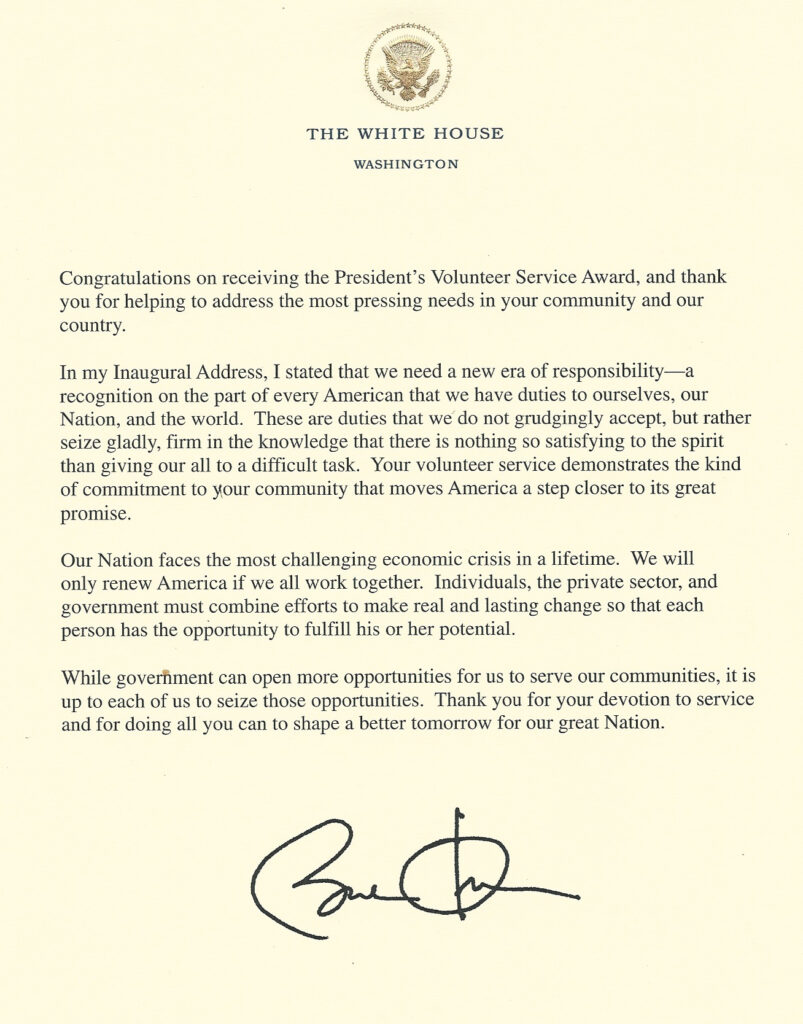 THE WHITE HOUSE
WASHINGTON
Congratulations on receiving the President's Volunteer Service Award, and thank
you for helping to address the most pressing needs in your community and our
country.
In my Inaugural Address, I stated that we need a new era of responsibility—a
recognition on the part of every American that we have duties to ourselves, our
Nation, and the world.  These are duties that we do not grudgingly accept, but rather
seize gladly, firm in the knowledge that there is nothing so satisfying to the spirit
than giving our all to a difficult task.  Your volunteer service demonstrates the kind
of commitment to your community that moves America a step closer to its great
promise.
Our Nation faces the most challenging economic crisis in a lifetime.  We will
only renew America if we all work together.  Individuals, the private sector, and
government must combine efforts to make real and lasting change so that each
person has the opportunity to fulfill his or her potential.
While government can open more opportunities for us to serve our communities, it is
up to each of us to seize those opportunities.  Thank you for your devotion to service
and for doing all you can to shape a better tomorrow for our great Nation.